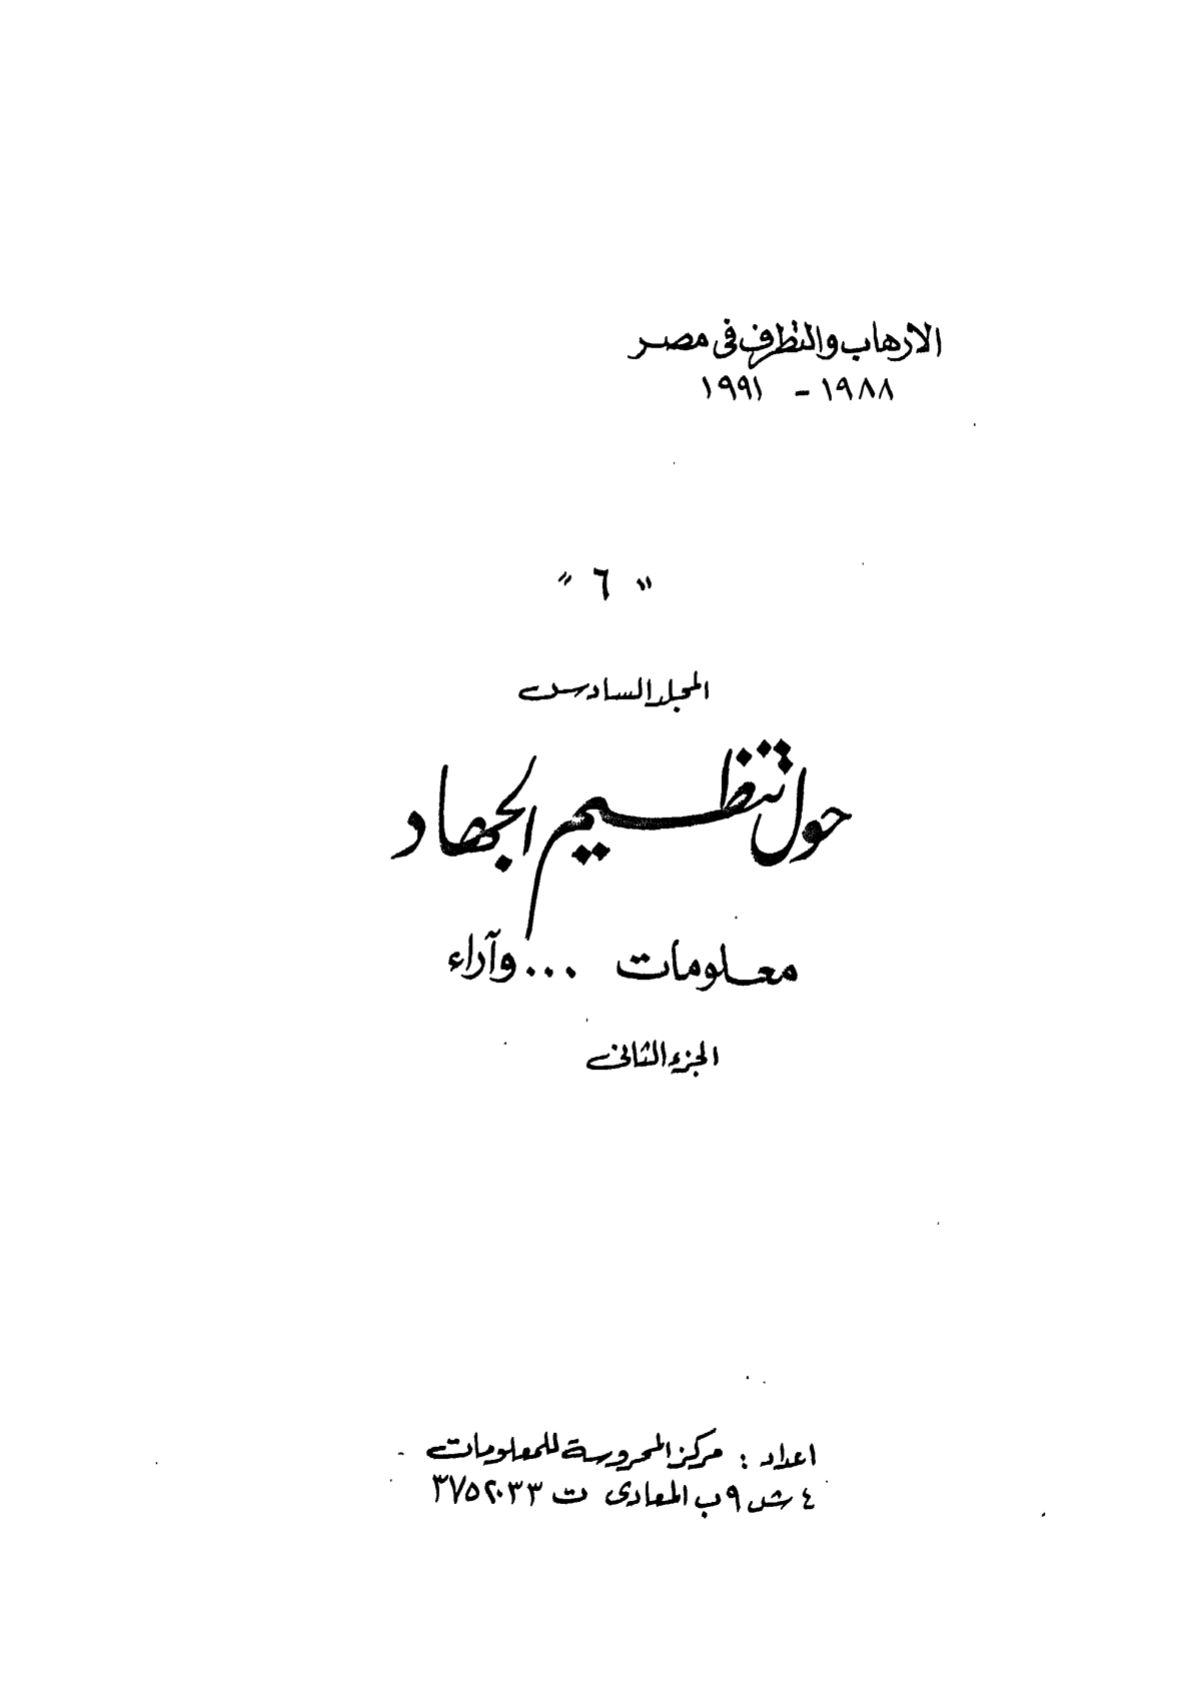 الارهاب والتطرف فى مصر
١٩٨٨ - ١٩٩١
" ٦ "
المجلد السادس
حول تنظيم الجهاد
معلومات ... وآراء
الجزء الثانى
اعداد : مركز المحروسة للمعلومات
٤ ش ٩ب المعادى ت ٣٧٥٢٠٣٣